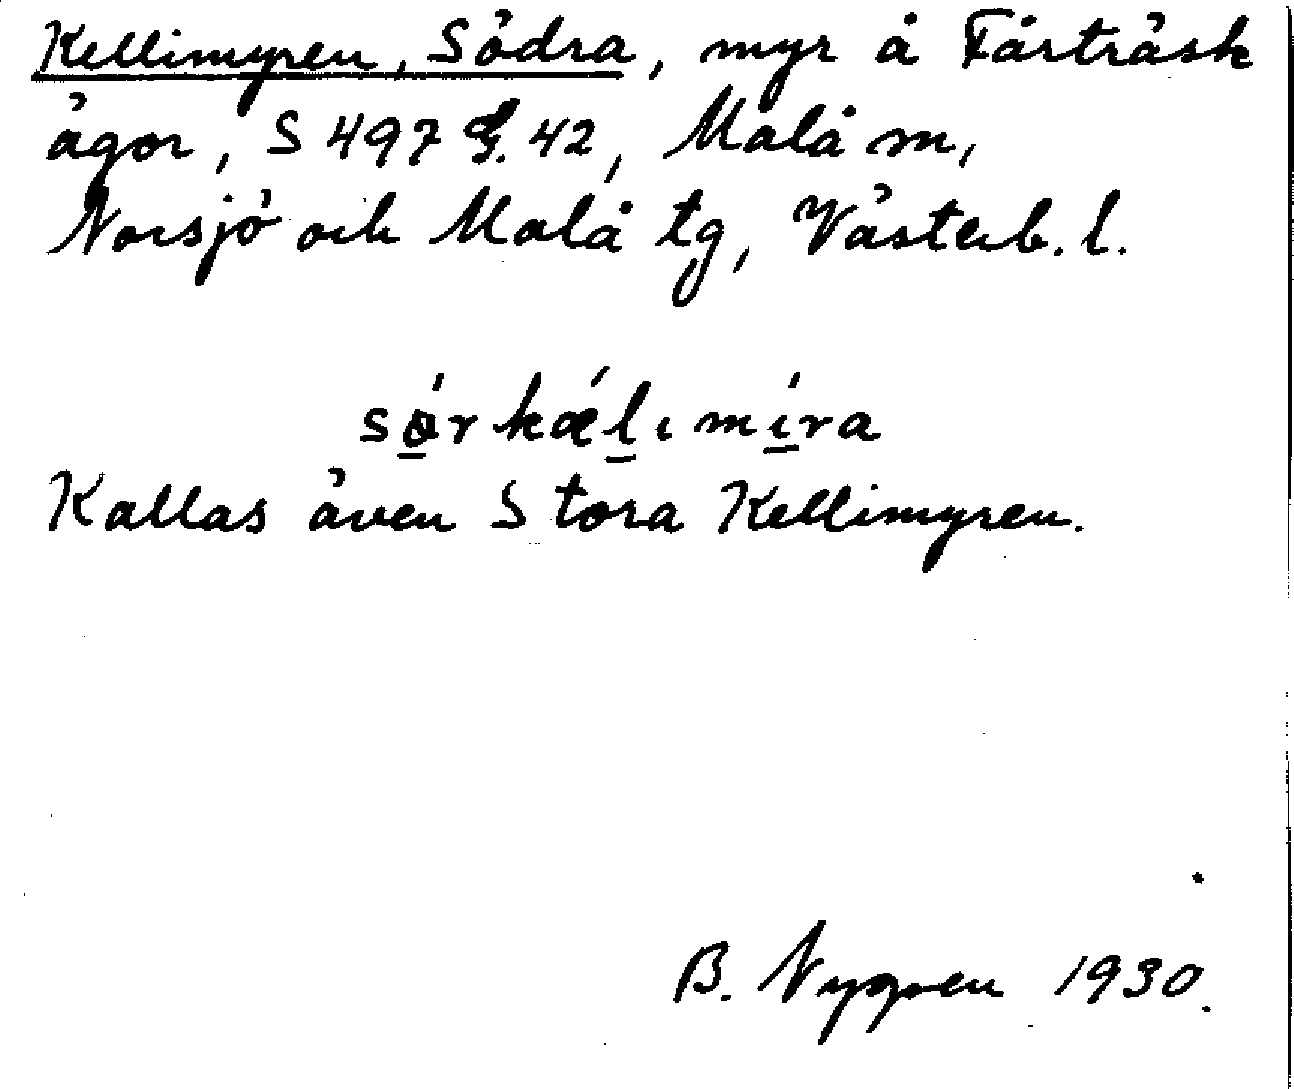 Kellimyren, Södra, myr å Fårträsk
ägor, S 497 G. 42, Malå sn,
Norsjö och Malå tg, Västerb. l.
Kallas även Stora Kellimyren.
B. Nygren 1930.